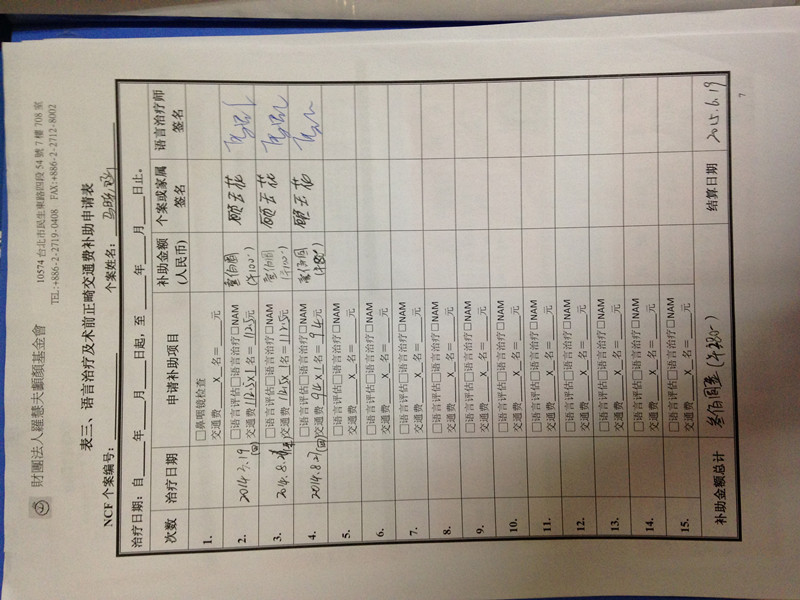 財團法人羅慧夫顱顏基金會
10574 台北市民生東路四段 54 號 7 樓 708 室
TEL:+886-2-2719-0408 FAX:+886-2-2712-8002
表三、语言治疗及术前正畸交通费补助申请表
NCF 个案编号: 个案姓名:
治疗日期:自 年 月 日起,至 年 月 日止。
次数 治疗日期 申请补助项目 补助金额(人民币) 个案或家属签名 语言治疗师签名
1. □鼻咽镜检查
交通费 X 名= 元
2. 2014 □语言评估□语言治疗□NAM
交通费 112.5 X 1 名= 112.5 元 顾云花
3. 2014.8. □语言评估□语言治疗□NAM
交通费 112.5 X 1 名= 112.5 元 顾云花
4. 2014.8.21 □语言评估□语言治疗□NAM
交通费 94 X 1 名= 94 元 顾云花
5. □语言评估□语言治疗□NAM
交通费 X 名= 元
6. □语言评估□语言治疗□NAM
交通费 X 名= 元
7. □语言评估□语言治疗□NAM
交通费 X 名= 元
8. □语言评估□语言治疗□NAM
交通费 X 名= 元
9. □语言评估□语言治疗□NAM
交通费 X 名= 元
10. □语言评估□语言治疗□NAM
交通费 X 名= 元
11. □语言评估□语言治疗□NAM
交通费 X 名= 元
12. □语言评估□语言治疗□NAM
交通费 X 名= 元
13. □语言评估□语言治疗□NAM
交通费 X 名= 元
14. □语言评估□语言治疗□NAM
交通费 X 名= 元
15. □语言评估□语言治疗□NAM
交通费 X 名= 元
补助金额总计 结算日期 2015.6.19
7